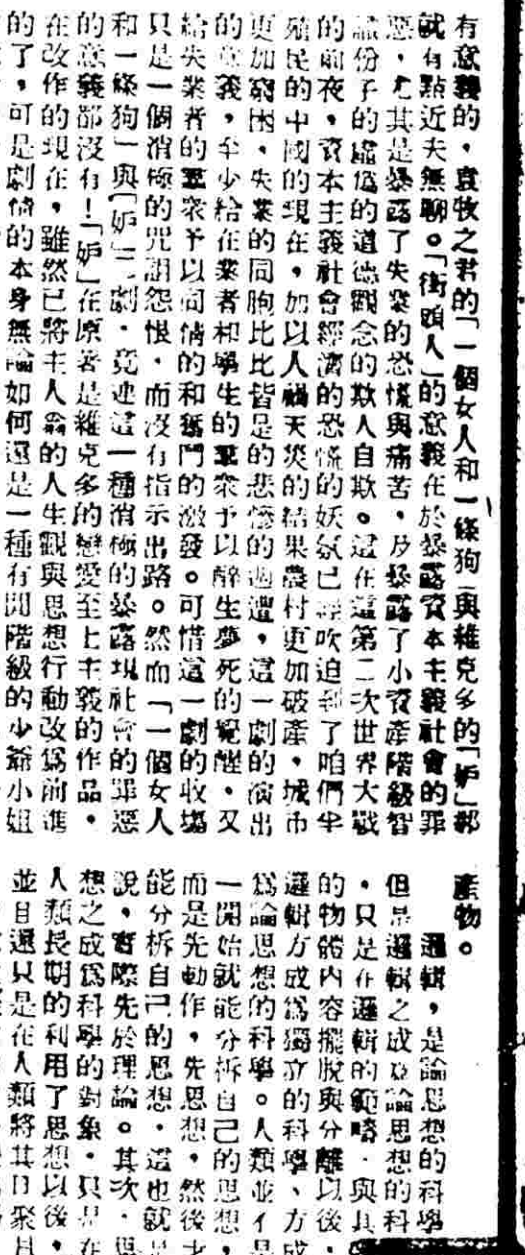 有意義的，袁牧之君的「一個女人和一條狗」與維克多的「妒」都
就有點近夫無聊。「街頭人」的意義在於暴露資本主義社會的罪
惡，尤其是暴露了失業的恐慌與痛苦，及暴露了小資產階級智
識份子的虛偽的道德觀念的欺人自欺。這在這第二次世界大戰
的前夜，資本主義社會經濟的恐慌的妖氛已經吹迫到了咱們半
殖民的中國的現在，加以人禍天災的結果農村更加破產，城市
更加窮困，失業的同胞比比皆是的悲慘的過遭，這一劇的演出
的意義，至少給在業者和學生的羣衆予以醉生夢死的覺醒，又
給失業者的羣衆予以同情的和奮鬥的激發。可惜這一劇的收場
只是一個消極的咒詛怨恨，而沒有指示出路。然而「一個女人
和一條狗」與「妒」二劇，竟連這一種消極的暴露現社會的罪惡
的意義都沒有！「妒」在原著是維克多的戀愛至上主義的作品，
在改作的現在，雖然已將主人翁的人生觀與思想行動改爲前進
的了，可是劇情的本身無論如何還是一種有閒階級的少爺小姐
產物。
邏輯，是論思想的科學
但是邏輯之成爲論思想的科
，只是在邏輯的範疇，與其
的物體內容擺脫與分離以後，
邏輯方成爲獨立的科學、方成
爲論思想的科學。人類並不是
一開始就能分析自己的思想，
而是先動作，先思想，然後才
能分析自己的思想，這也就是
說，實際先於理論。其次，思
想之成爲科學的對象，只是在
人類長期的利用了思想以後，
並且還只是在人類將其日聚月